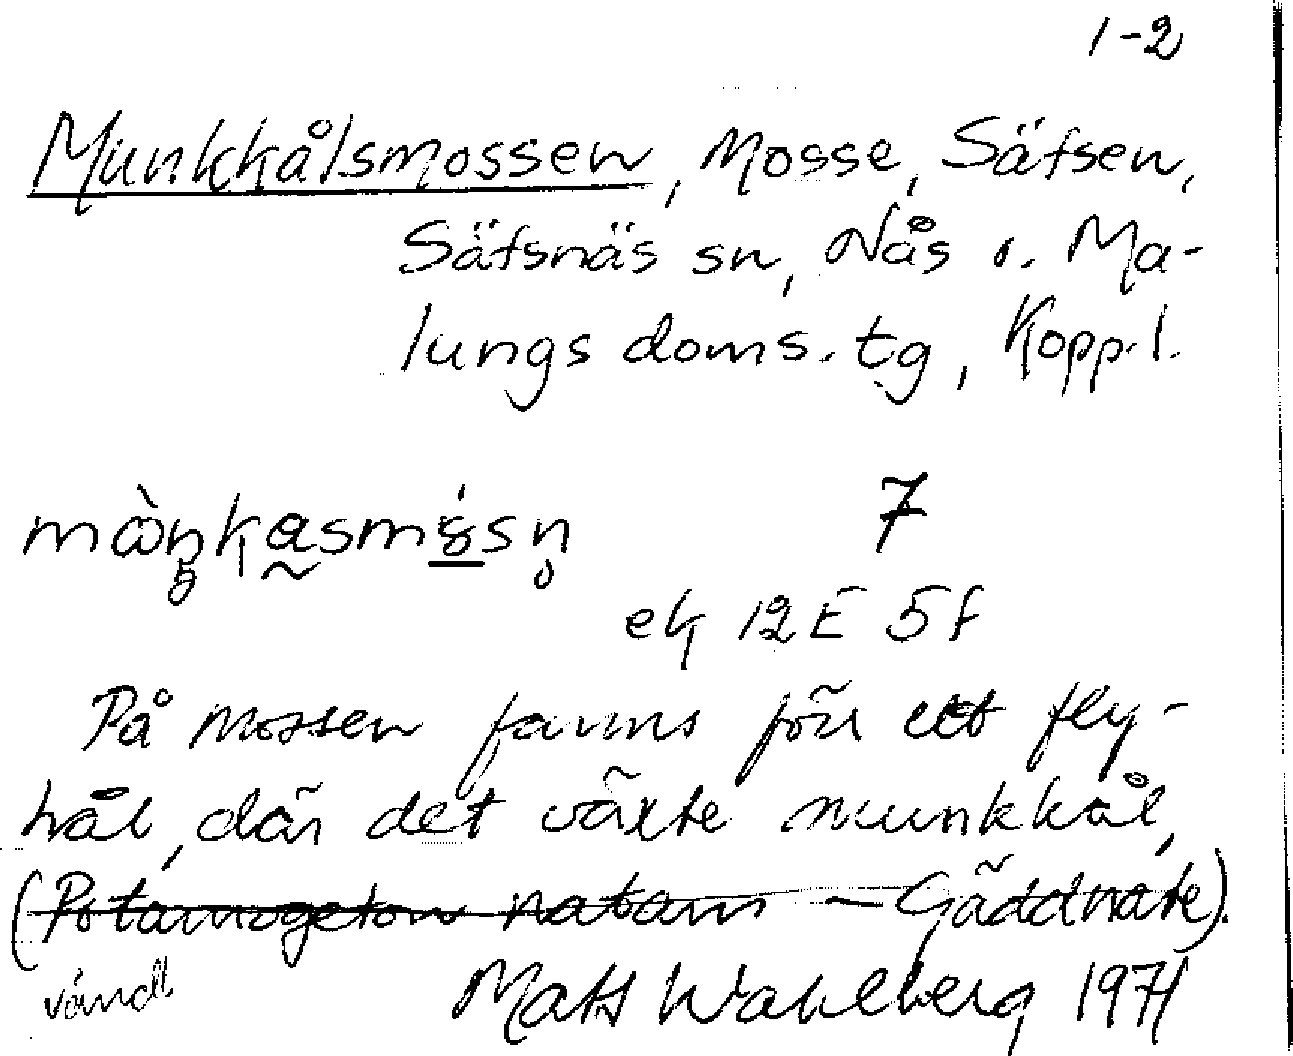 1-2
Munkkålsmossen, Mosse, Säfsen,
Säfsnäs sn, Nås o. Ma-
lungs doms. tg, Kopp. l.
7
ek 12E 5f
På mossen fanns förr ett fly-
hål, där det växte munkkål,
(Potamogeton natans – Gäddnate).
vänd! Mats Wahlberg 1971